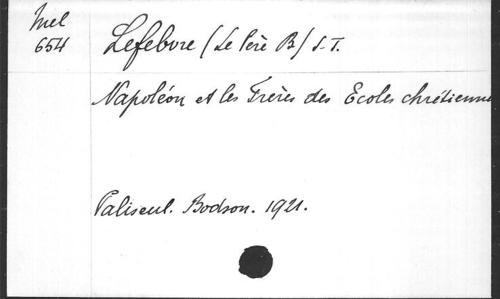 Mel
654
Lefebvre (Le Père B) S.T.
Napoléon et les Frères des Ecoles chrétienne
Paliseul. Bodson. 1921.